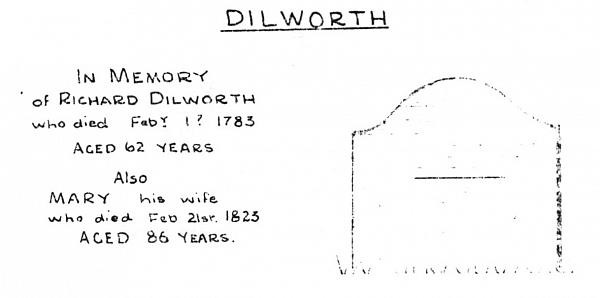 DILWORTH
IN MEMORY
of RICHARD DILWORTH
who died Feby 1? 1783
AGED 62 YEARS
Also
MARY his wife
who died Feb 21st. 1823
AGED 86 YEARS.